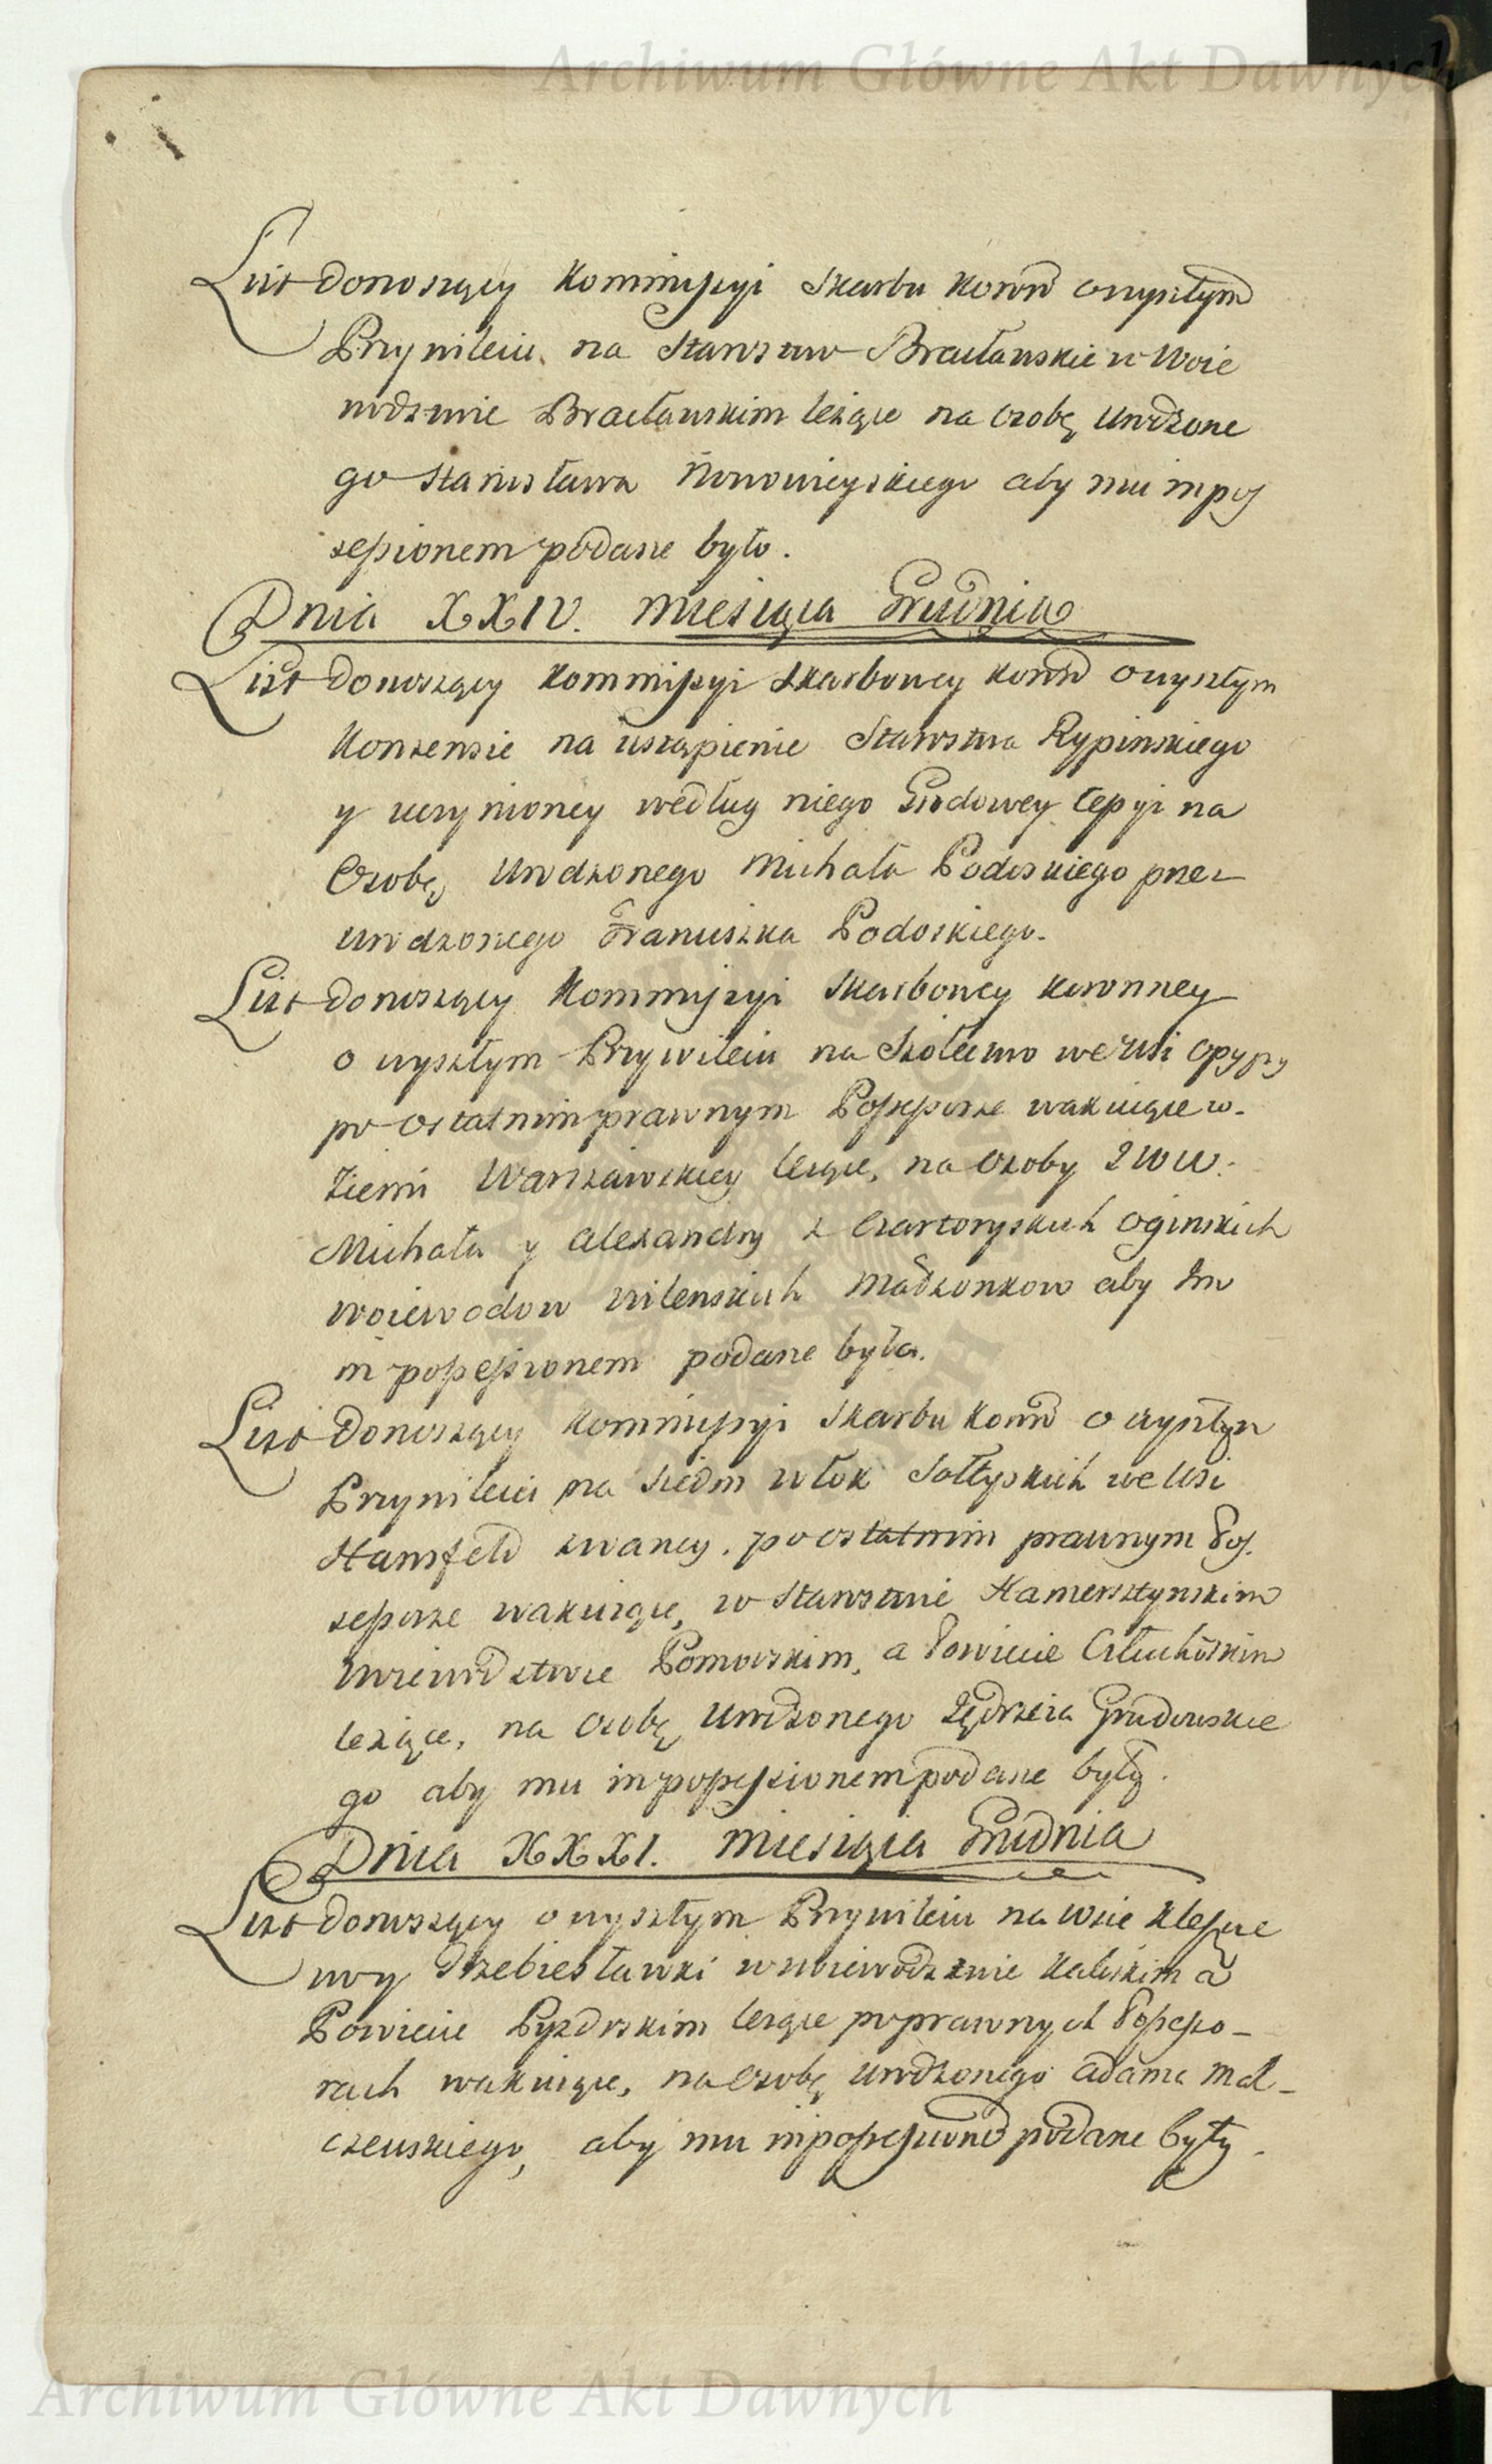 Archiwum Główne Akt Dawnych
List donoszący Kommissyi Skarbu Koronn o wyszłym
Przywileiu na Starostwo Bracławskie w Woie
wodztwie Bracławskim leżące na Osobę Urodzone
go Stanisława Nowowieyskiego aby mu in pos
sessionem podane było.
Dnia XXIV. Miesiąca Grudnia
List donoszący Kommissyi Skarbowey Koronn o wyszłym
Konsensie na ustąpienie Starostwa Rypinskiego
y uczynioney według niego Grodowey Cessyi na
Osobę Urodzonego Michała Podoskiego przez
Urodzonego Franciszka Podoskiego.
List donoszący Kommissyi Skarbowey Koronney
o wyszłym Przywileiu na Szołectwo we Wsi Opypy
po ostatnim prawnym Possessorze wakuiące w
Ziemi Warszawskiey leżące, na Osoby 2 WW.
Michała y Alexandry z Czartoryskich Oginskich
Woiewodow Wilenskich Małżonkow aby Im
in possessionem podane było.
List donoszący Kommissyi Skarbu Koronn o wyszłym
Przywileiu na Siedm włok Sołtyskich we Wsi
Hansfeld zwaney, po ostatnim prawnym Pos
sessorze wakuiące, w Starostwie Hamersztynskim
Woiewodztwie Pomorskim, a Powiecie Człuchoskim
leżące, na Osobę Urodzonego Jędrzeia Grudowskie
go aby mu in possessionem podane były.
Dnia XXXI. Miesiąca Grudnia
List donoszący o wyszłym Przywileiu na Wsie Klesze
wo y Trzebiesławki w Woiewodztwie Kaliskim a
Powiecie Pyzdrskim leżące po prawnych Possesso-
rach wakuiące, na Osobę Urodzonego Adama Mal-
czewskiego, aby mu in possessionem podane były.
Archiwum Główne Akt Dawnych